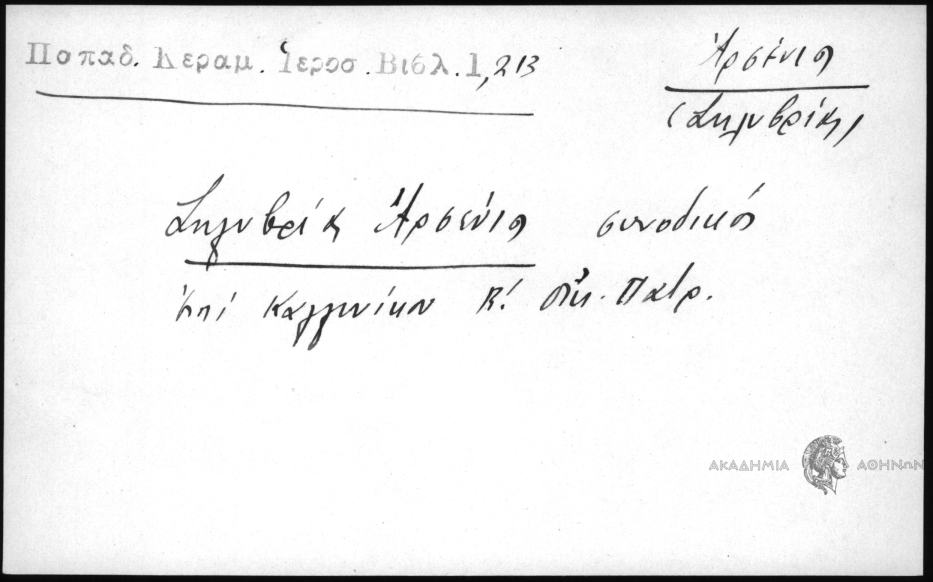 Παπαδ. Κεραμ. Ἱεροσ. Βιβλ. 1, 213
Ἀρσένιος
(Σηλυβρίας)
Σηλυβρίας Ἀρσένιος συνοδικός
ἐπί Καλλινίκου Β΄. Οἰκ. Πατρ.
ΑΚΑΔΗΜΙΑ ΑΘΗΝΩΝ